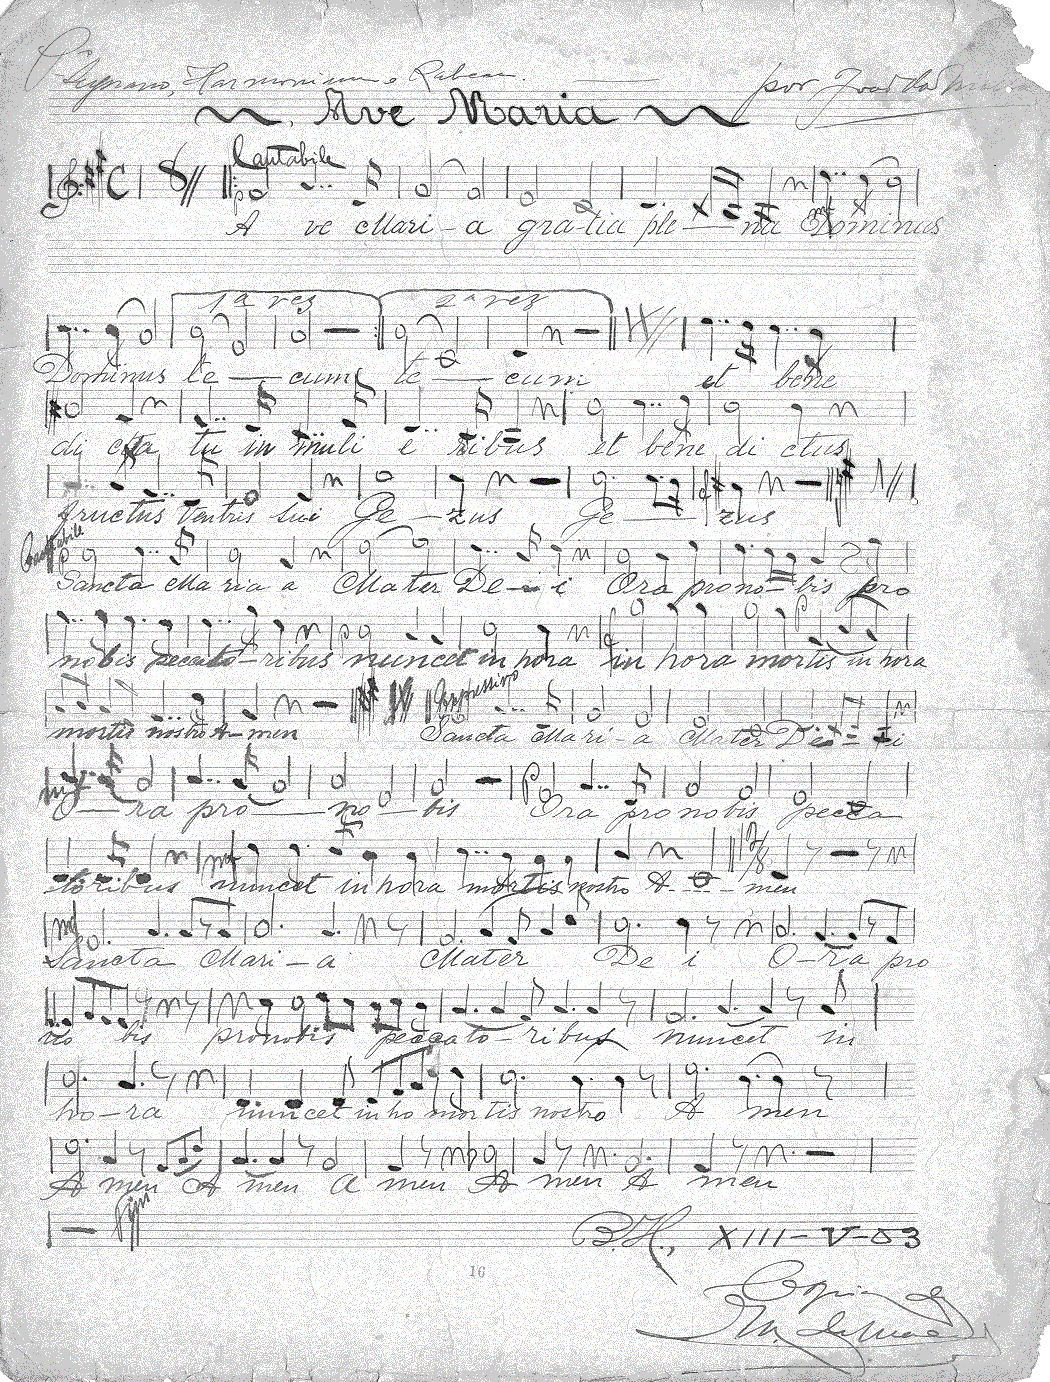 Soprano, Harmonium e Rabeca. por João da Matta
Ave Maria
Cantabile
A ve Mari - a gra-tia ple — na Dominus
1ª vez 2ª vez
Dominus te — cum te — cum et bene
di cta tu in muli e ribus et bene di ctus
fructus ventris tui Ge — zus Ge — zus
Cantabile
Sancta Ma ria a Mater De - i Ora prono - bis pro
nobis peccato - ribus nuncet in hora in hora mortis in hora
Expressivo
mortis nostro A - men Sancta Mari a Mater De - i
O — ra pro — no — bis Ora pro nobis pecca
toribus nuncet in hora mortis nostro A - - - men
mf
Sancta Mari - a Mater De i O - ra pro
no bis pronobis peccato - ribus nuncet in
ho - ra nuncet in ho mortis nostro A men
A men A men A men A men A men
Fim
B.H., XIII - V - 53
16
Copia de